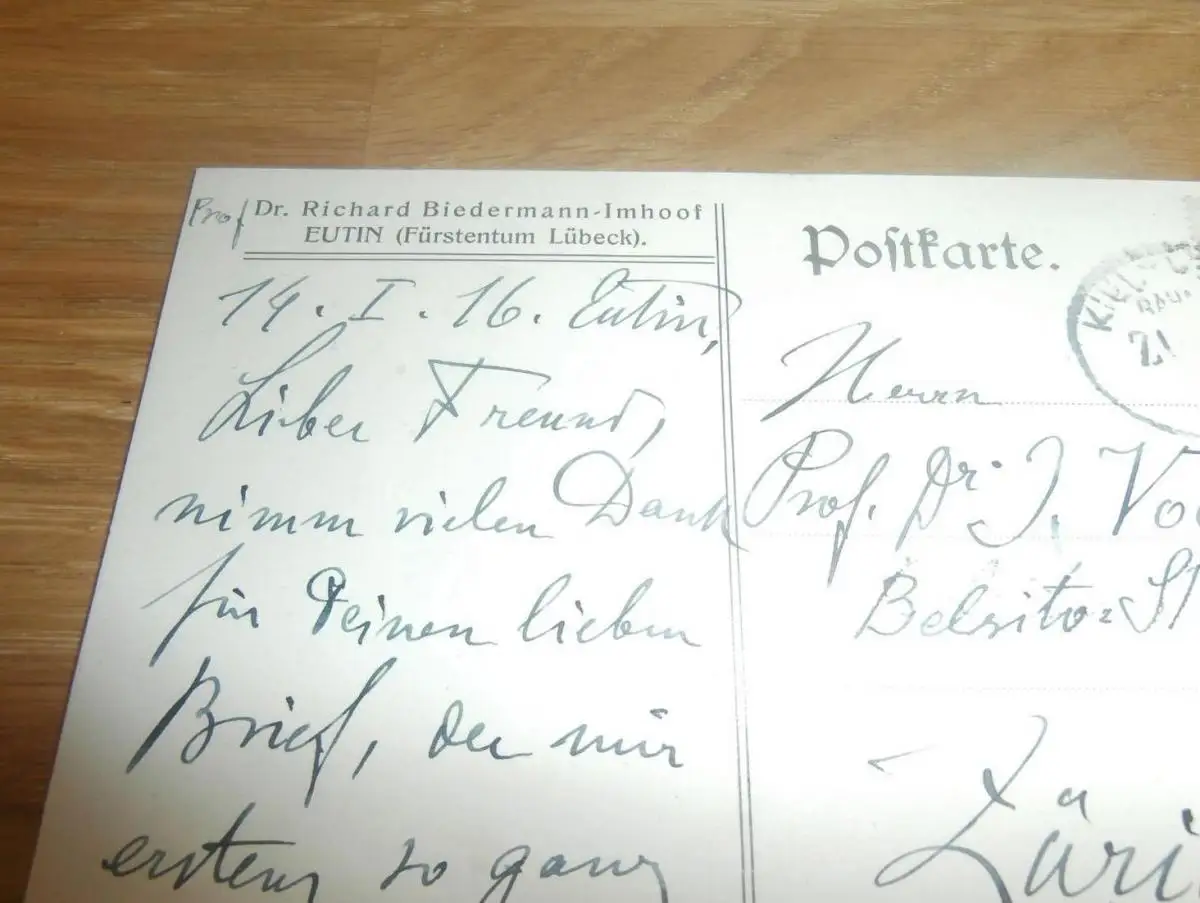 Prof Dr. Richard Biedermann-Imhoof
EUTIN (Fürstentum Lübeck).
14. I. 16. Eutin,
Lieber Freund,
nimm vielen Dank
für Deinen lieben
Brief, der mir
erstens so ganz
Postkarte.
KIEL
Herrn
Prof. Dr. J. Vo
Belsito=St
Züri